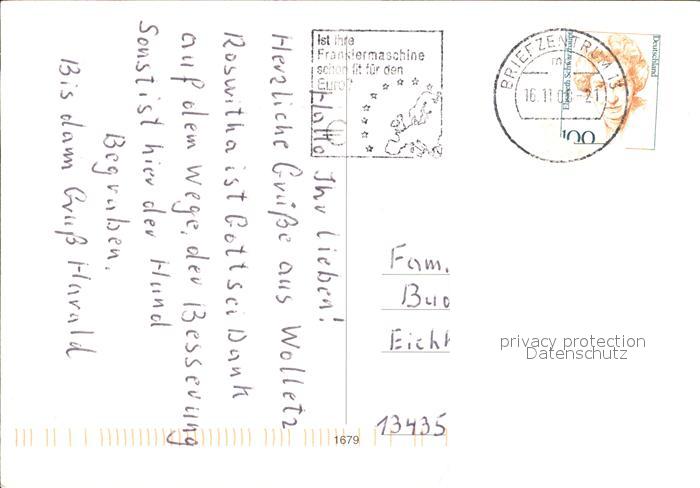 Hallo Ihr Lieben!
Herzliche Grüße aus Wolletz
Roswitha ist Gott sei Dank
auf dem Wege, der Besserung
Sonst ist hier der Hund
Begraben.
Bis dann Gruß Harald
Ist Ihre
Frankiermaschine
schon fit für den
Euro?
BRIEFZENTRUM 15
16.11.0
-21
Deutschland
Elisabeth Schwarzhaupt
100
Fam.
Bud
Eichh
13435
privacy protection
Datenschutz
1679